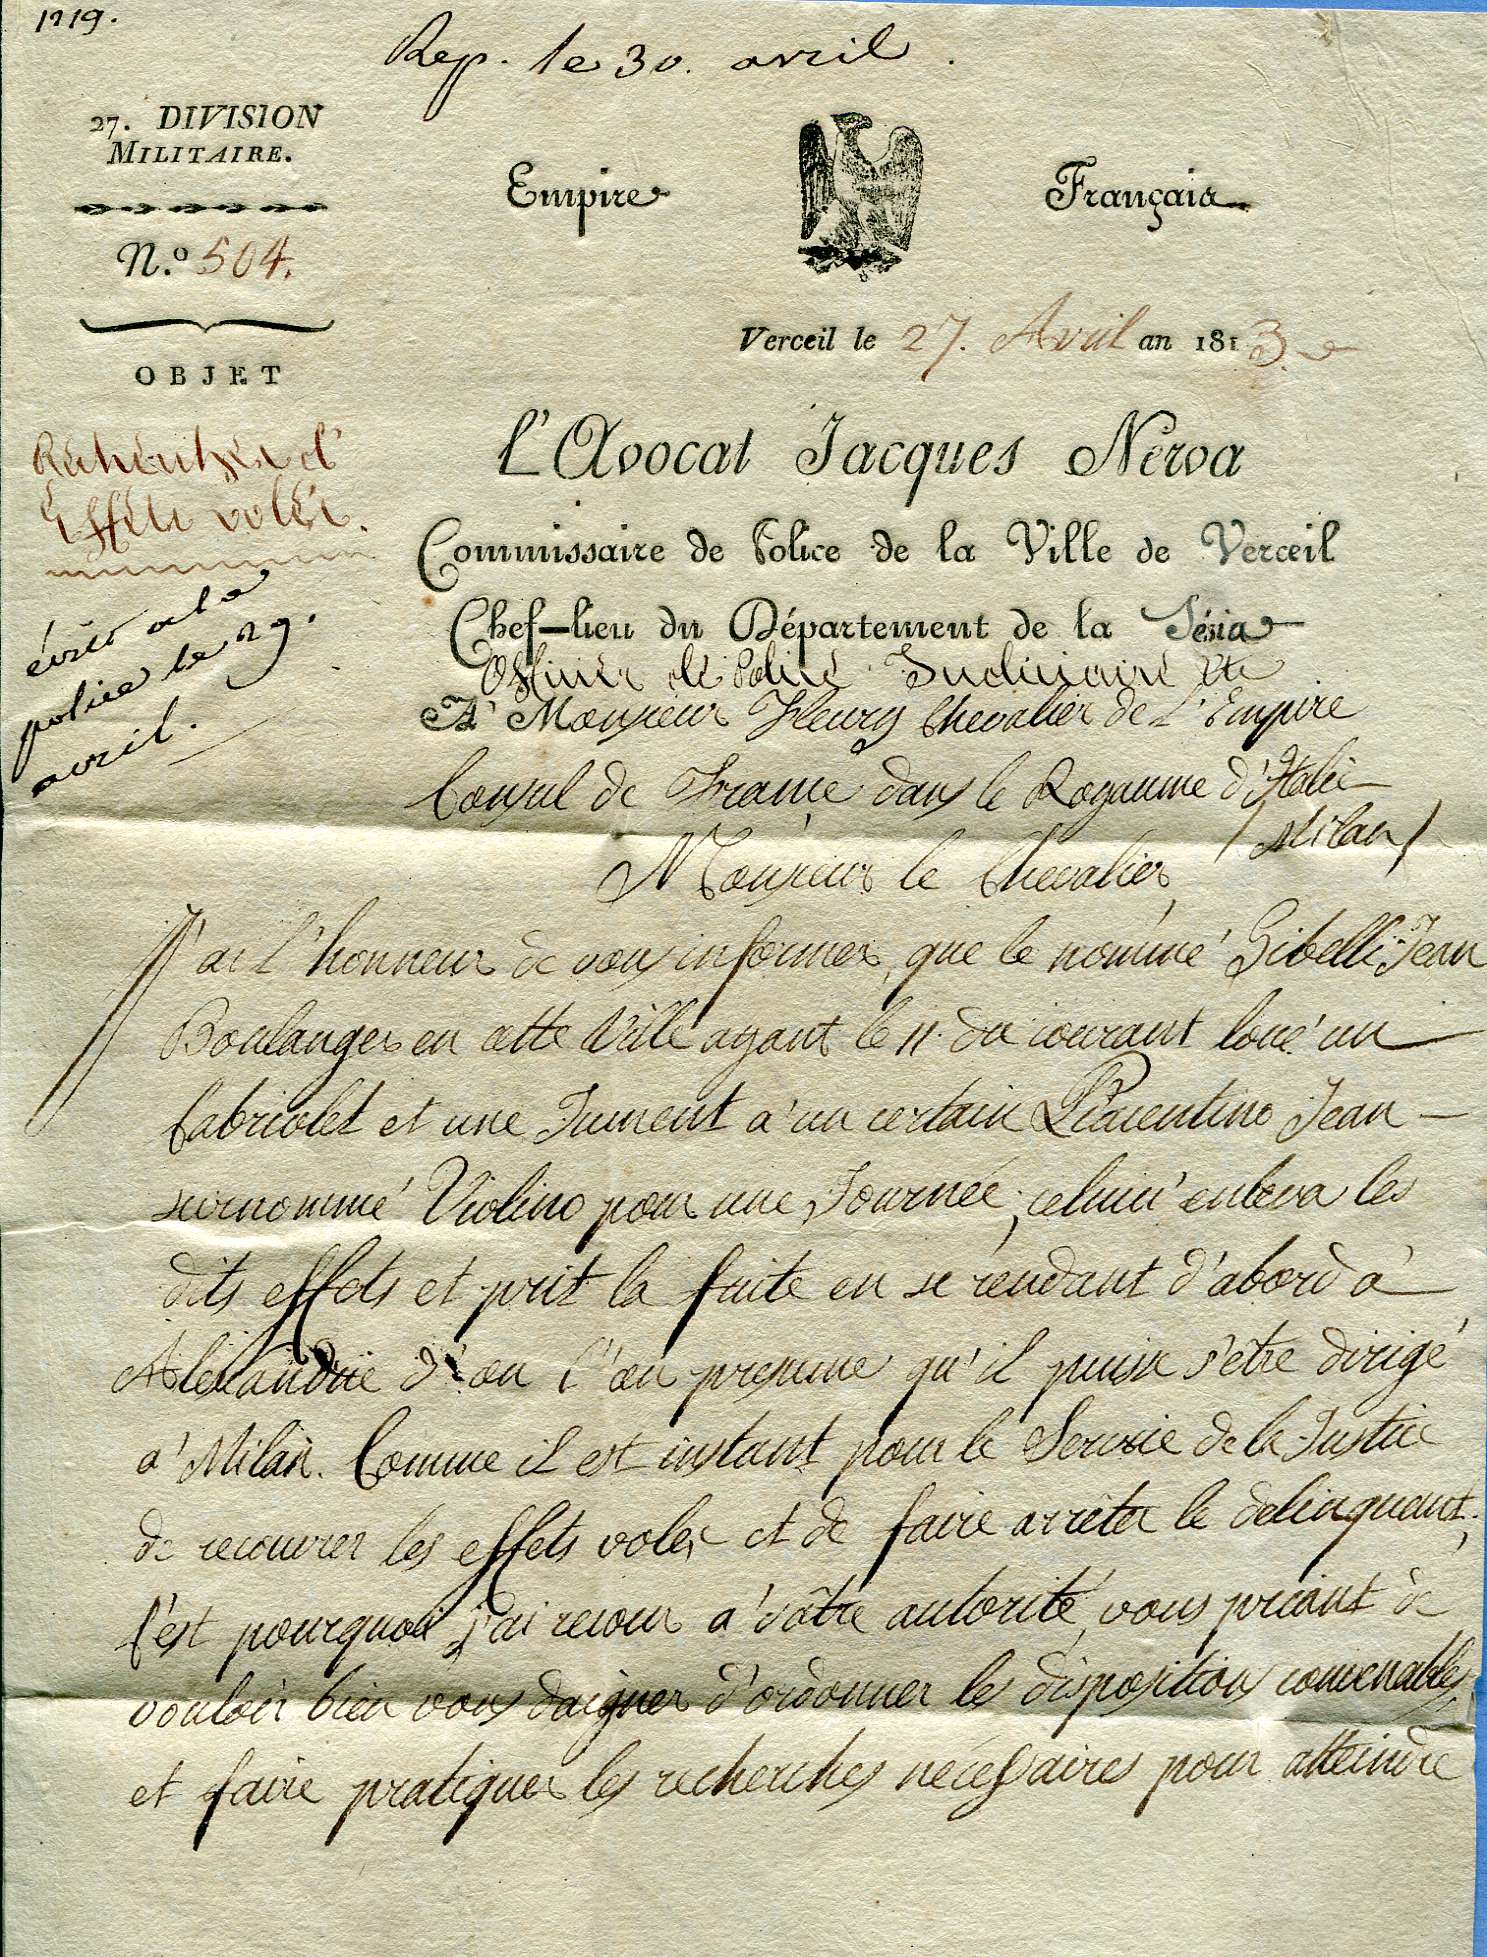 1219.
Rep. le 30. avril.
27. DIVISION
MILITAIRE.
N.º 504.
OBJET
Recherches d'
Effets volés.
écrit a la
police le 29.
avril.
Empire Français
Verceil le 27. Avril an 1813
L'Avocat Jacques Nerva
Commissaire de Police de la Ville de Verceil
Chef-lieu du Département de la Sésia
Officier de Police Judiciaire etc
A' Monsieur Fleury Chevalier de L'Empire
Consul de France dans le Royaume d'Italie
/ Milan /
Monsieur le Chevalier,
J'ai l'honneur de vous informer, que le nommé Gibelli Jean
Boulanger en cette Ville ayant le 11. du courant loué un
Cabriolet et une Jument a' un certain Piacentino Jean
surnommé Violino pour une Journée; celuici enleva les
dits effets et prit la fuite en se rendant d'abord à
Alexandrie d'ou l'on presume qu'il puisse s'etre dirigé
a' Milan. Comme il est instant pour le Service de la Justice
de recouvrer les effets volés et de faire arrêter le delinquant;
C'est pourquoi j'ai recour a' vôtre autorité, vous priant de
vouloir bien vous daigner d'ordonner les dispositions convenables,
et faire pratiquer les recherches necessaires pour atteindre